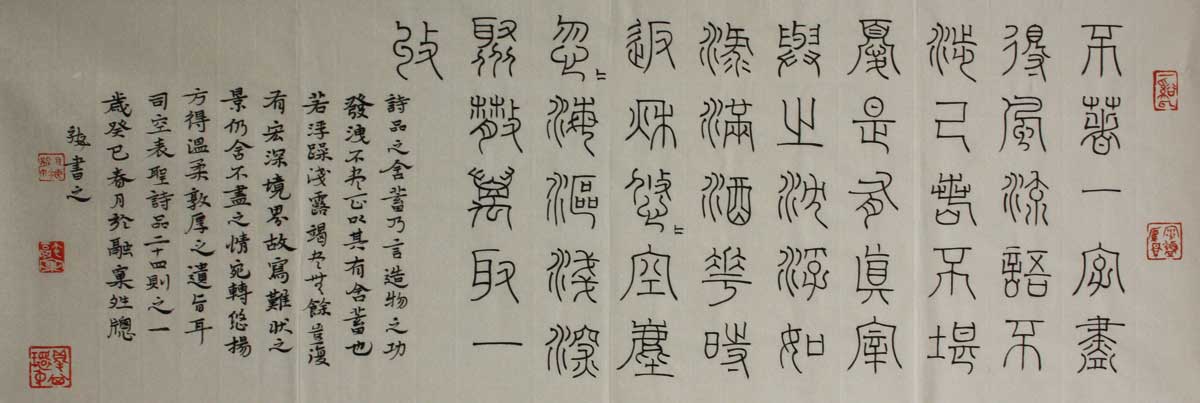 不著一字盡
得風流語不
涉己若不堪
憂是有真宰
與之沈浮如
淥滿酒花時
返秋悠〻空塵
忽〻海漚淺深
聚散萬取一
收
詩品之含蓄乃言造物之功
發洩不盡正以其有含蓄也
若浮躁淺露竭盡無餘豈復
有宏深境界故寫難狀之
景仍含不盡之情宛轉悠揚
方得溫柔敦厚之遺旨耳
司空表聖詩品二十四則之一
歲癸巳春月於融牕
書之